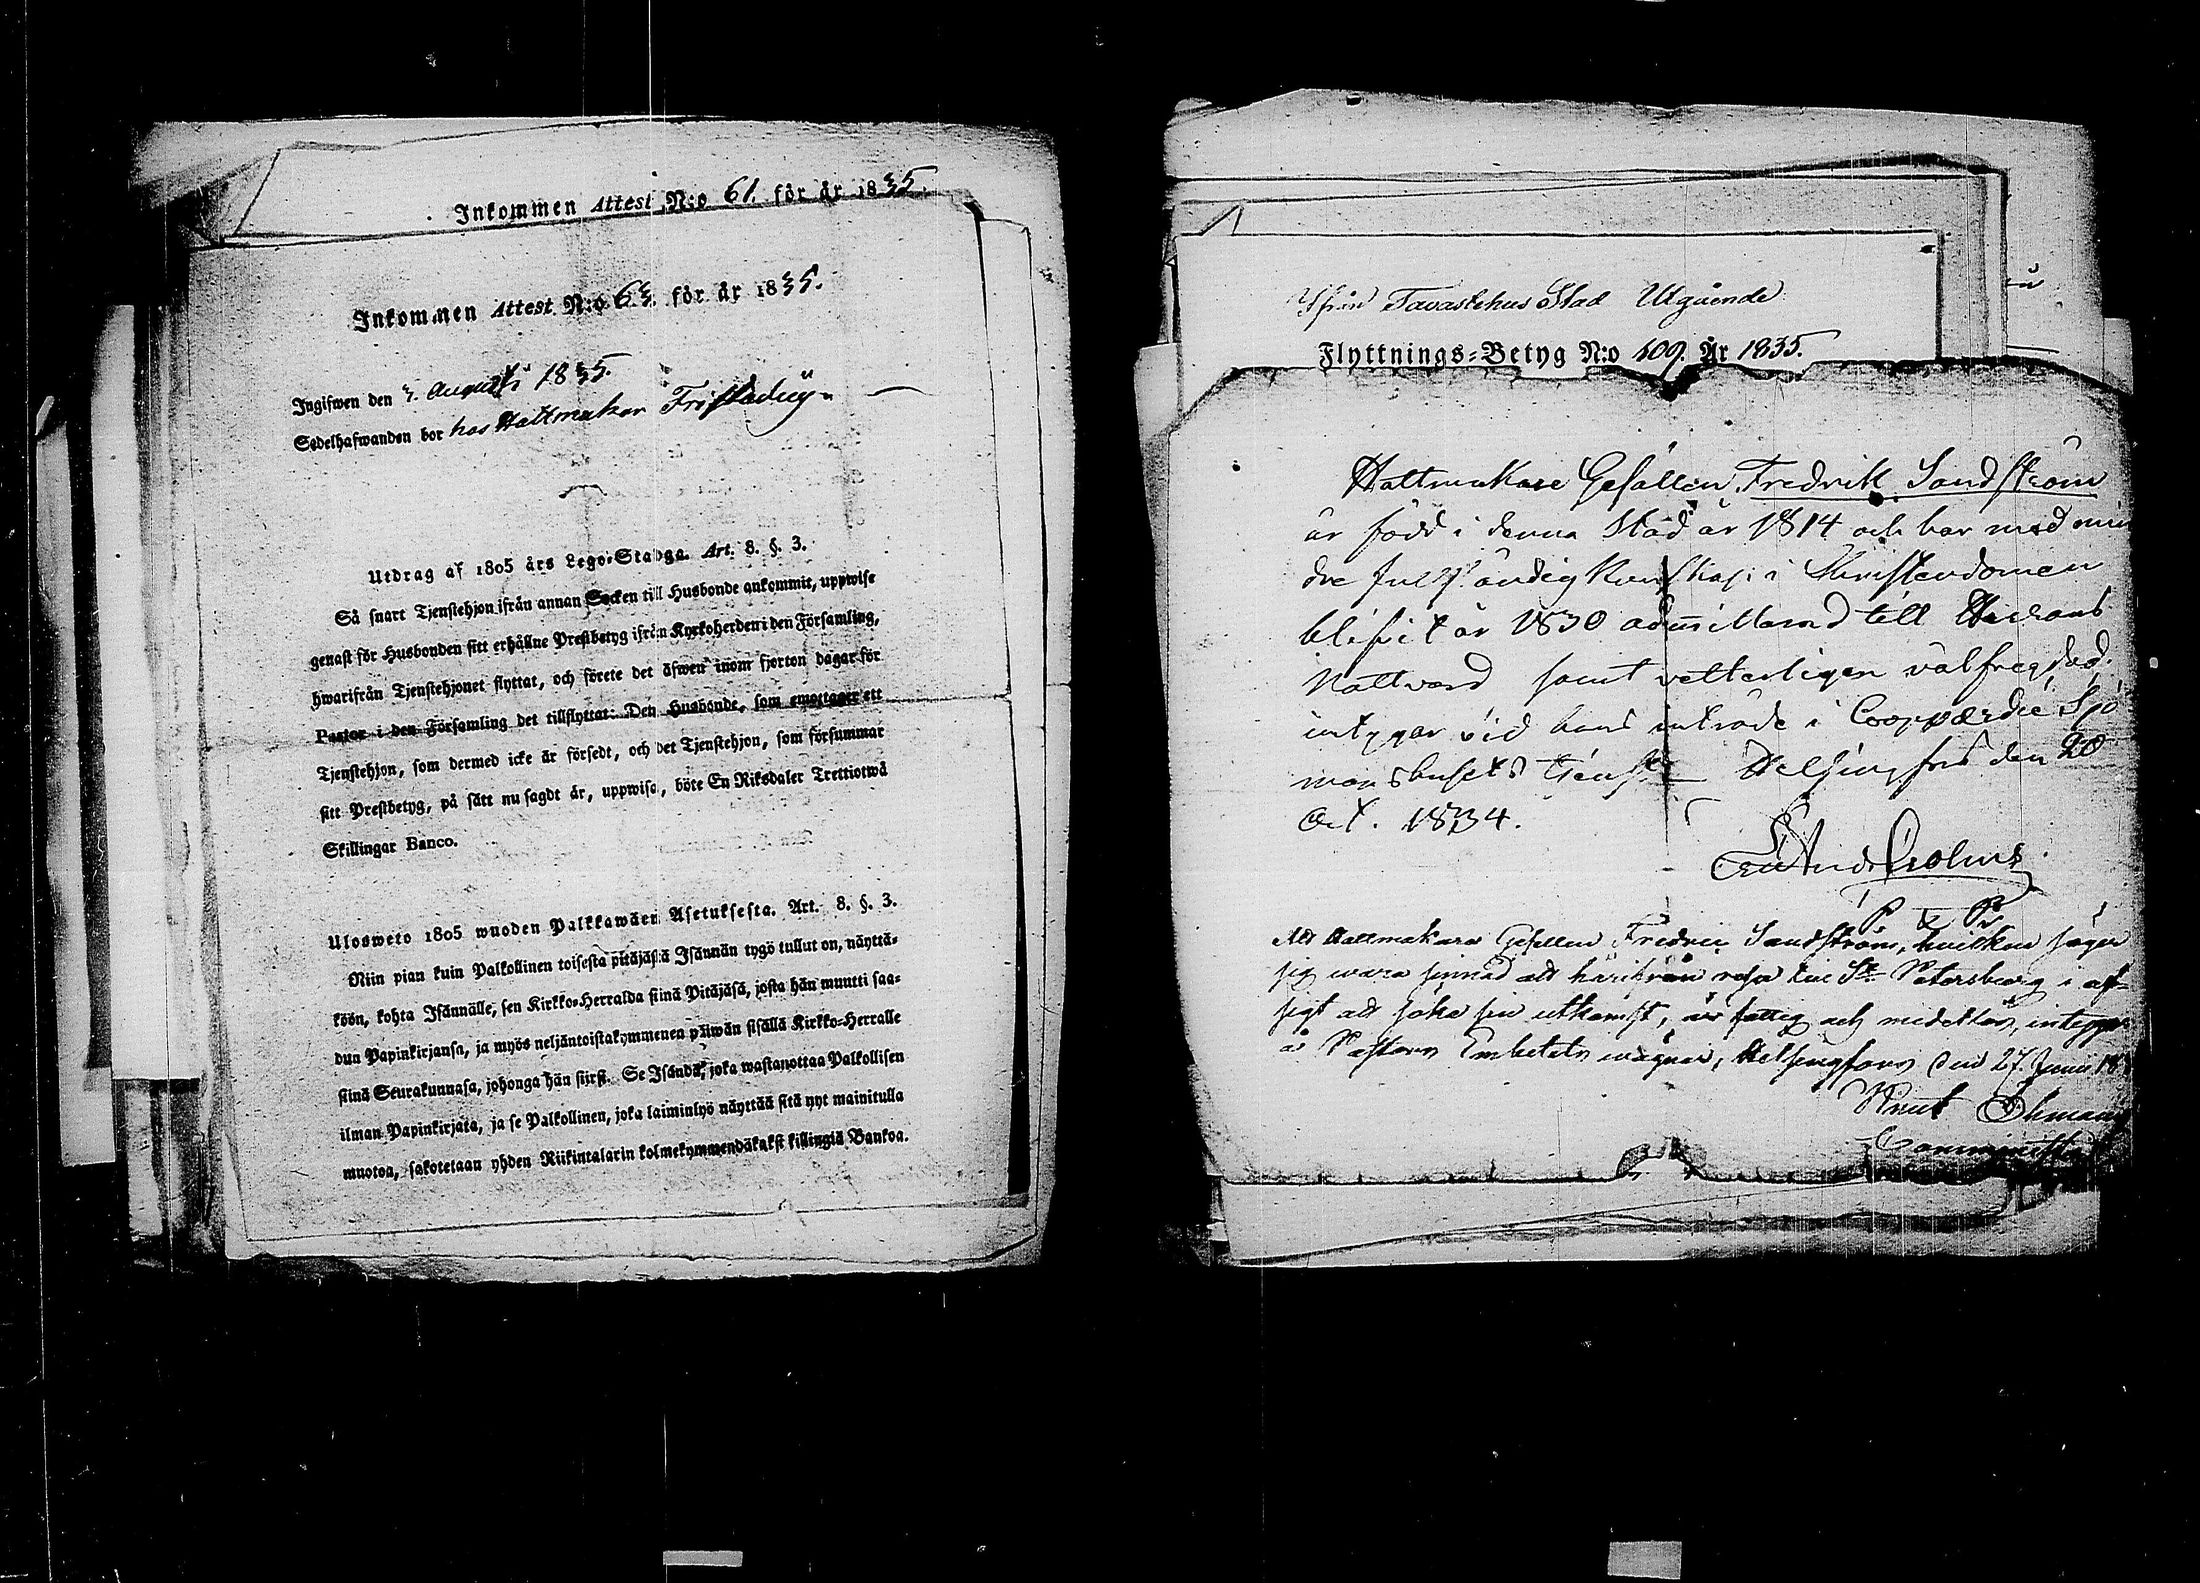 Inkommen Attest N:o 61. för år 1835.
Inkommen Attest N:o 63. för år 1835.
Ingifwen den 3. Augusti 1835.
Sedelhafwanden bor hos Hattmakar
Utdrag af 1805 års Lego-Stadga. Art. 8. §. 3.
Så snart Tjenstehjon ifrån annan Socken till Husbonde ankommit, uppwise
genast för Husbonden sitt erhållne Prestbetyg ifrån Kyrkoherden i den Församling,
hwarifrån Tjenstehjonet flyttat, och förete det äfwen inom fjorton dagar för
Pastor i den Församling det tillflyttat: Den Husbonde, som emottager ett
Tjenstehjon, som dermed icke är försedt, och det Tjenstehjon, som försummar
sitt Prestbetyg, på sätt nu sagdt är, uppwisa, böte En Riksdaler Trettiotwå
Skillingar Banco.
Ulosweto 1805 wuoden Palkkawäen Asetuksesta. Art. 8. §. 3.
Niin pian kuin Palkollinen toisesta pitäjästä Isännän tygö tullut on, näyttä-
köön, kohta Isännälle, sen Kirkko-Herralda siinä Pitäjäsä, josta hän muutti saa-
dun Papinkirjansa, ja myös neljäntoistakymmenen päiwän sisällä Kirkko-Herralle
siinä Seurakunnasa, johonga hän siirsi. Se Isändä, joka wastanottaa Palkollisen
ilman Papinkirjata, ja se Palkollinen, joka laiminlyö näyttää sitä nyt mainitulla
muotoa, sakotetaan yhden Riikintalarin kolmekymmendäkaksi killingiä Bankoa.
Ifrån Tavastehus Stad Utgående
Flyttnings-Betyg N:o 109. År 1835.
Hattmakare Gesällen Fredrik Sandström
är född i denna Stad år 1814 och har med min
dre fullständig kunskap i Christendomen
blifvit år 1830 admitterad till Herrans
Nattvard samt vetterligen välfregdad.
intygar vid hans inträde i Coopværdie Sjö
manshusets tienst Helsingfors den 20
Oct. 1834.
Att Hattmakare Gesellen Fredric Sandström, hvilken säger
sig wara sinnad att härifrån resa till St. Petersburg i af-
sigt att söka sin utkomst, är fattig och medellös, intygar
å Pastors Embetets wägnar, Helsingfors den 27. Junii 18
Knut Öhman
Comminister